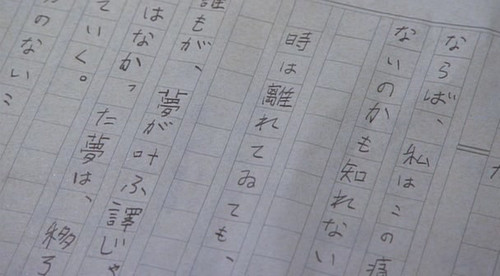 ならば、私はこの痛
ないのかも知れない
時は離れてゐても、
誰もが、夢が叶ふ譯じゃ
はなかった夢は、移ろ
ていく。
のない